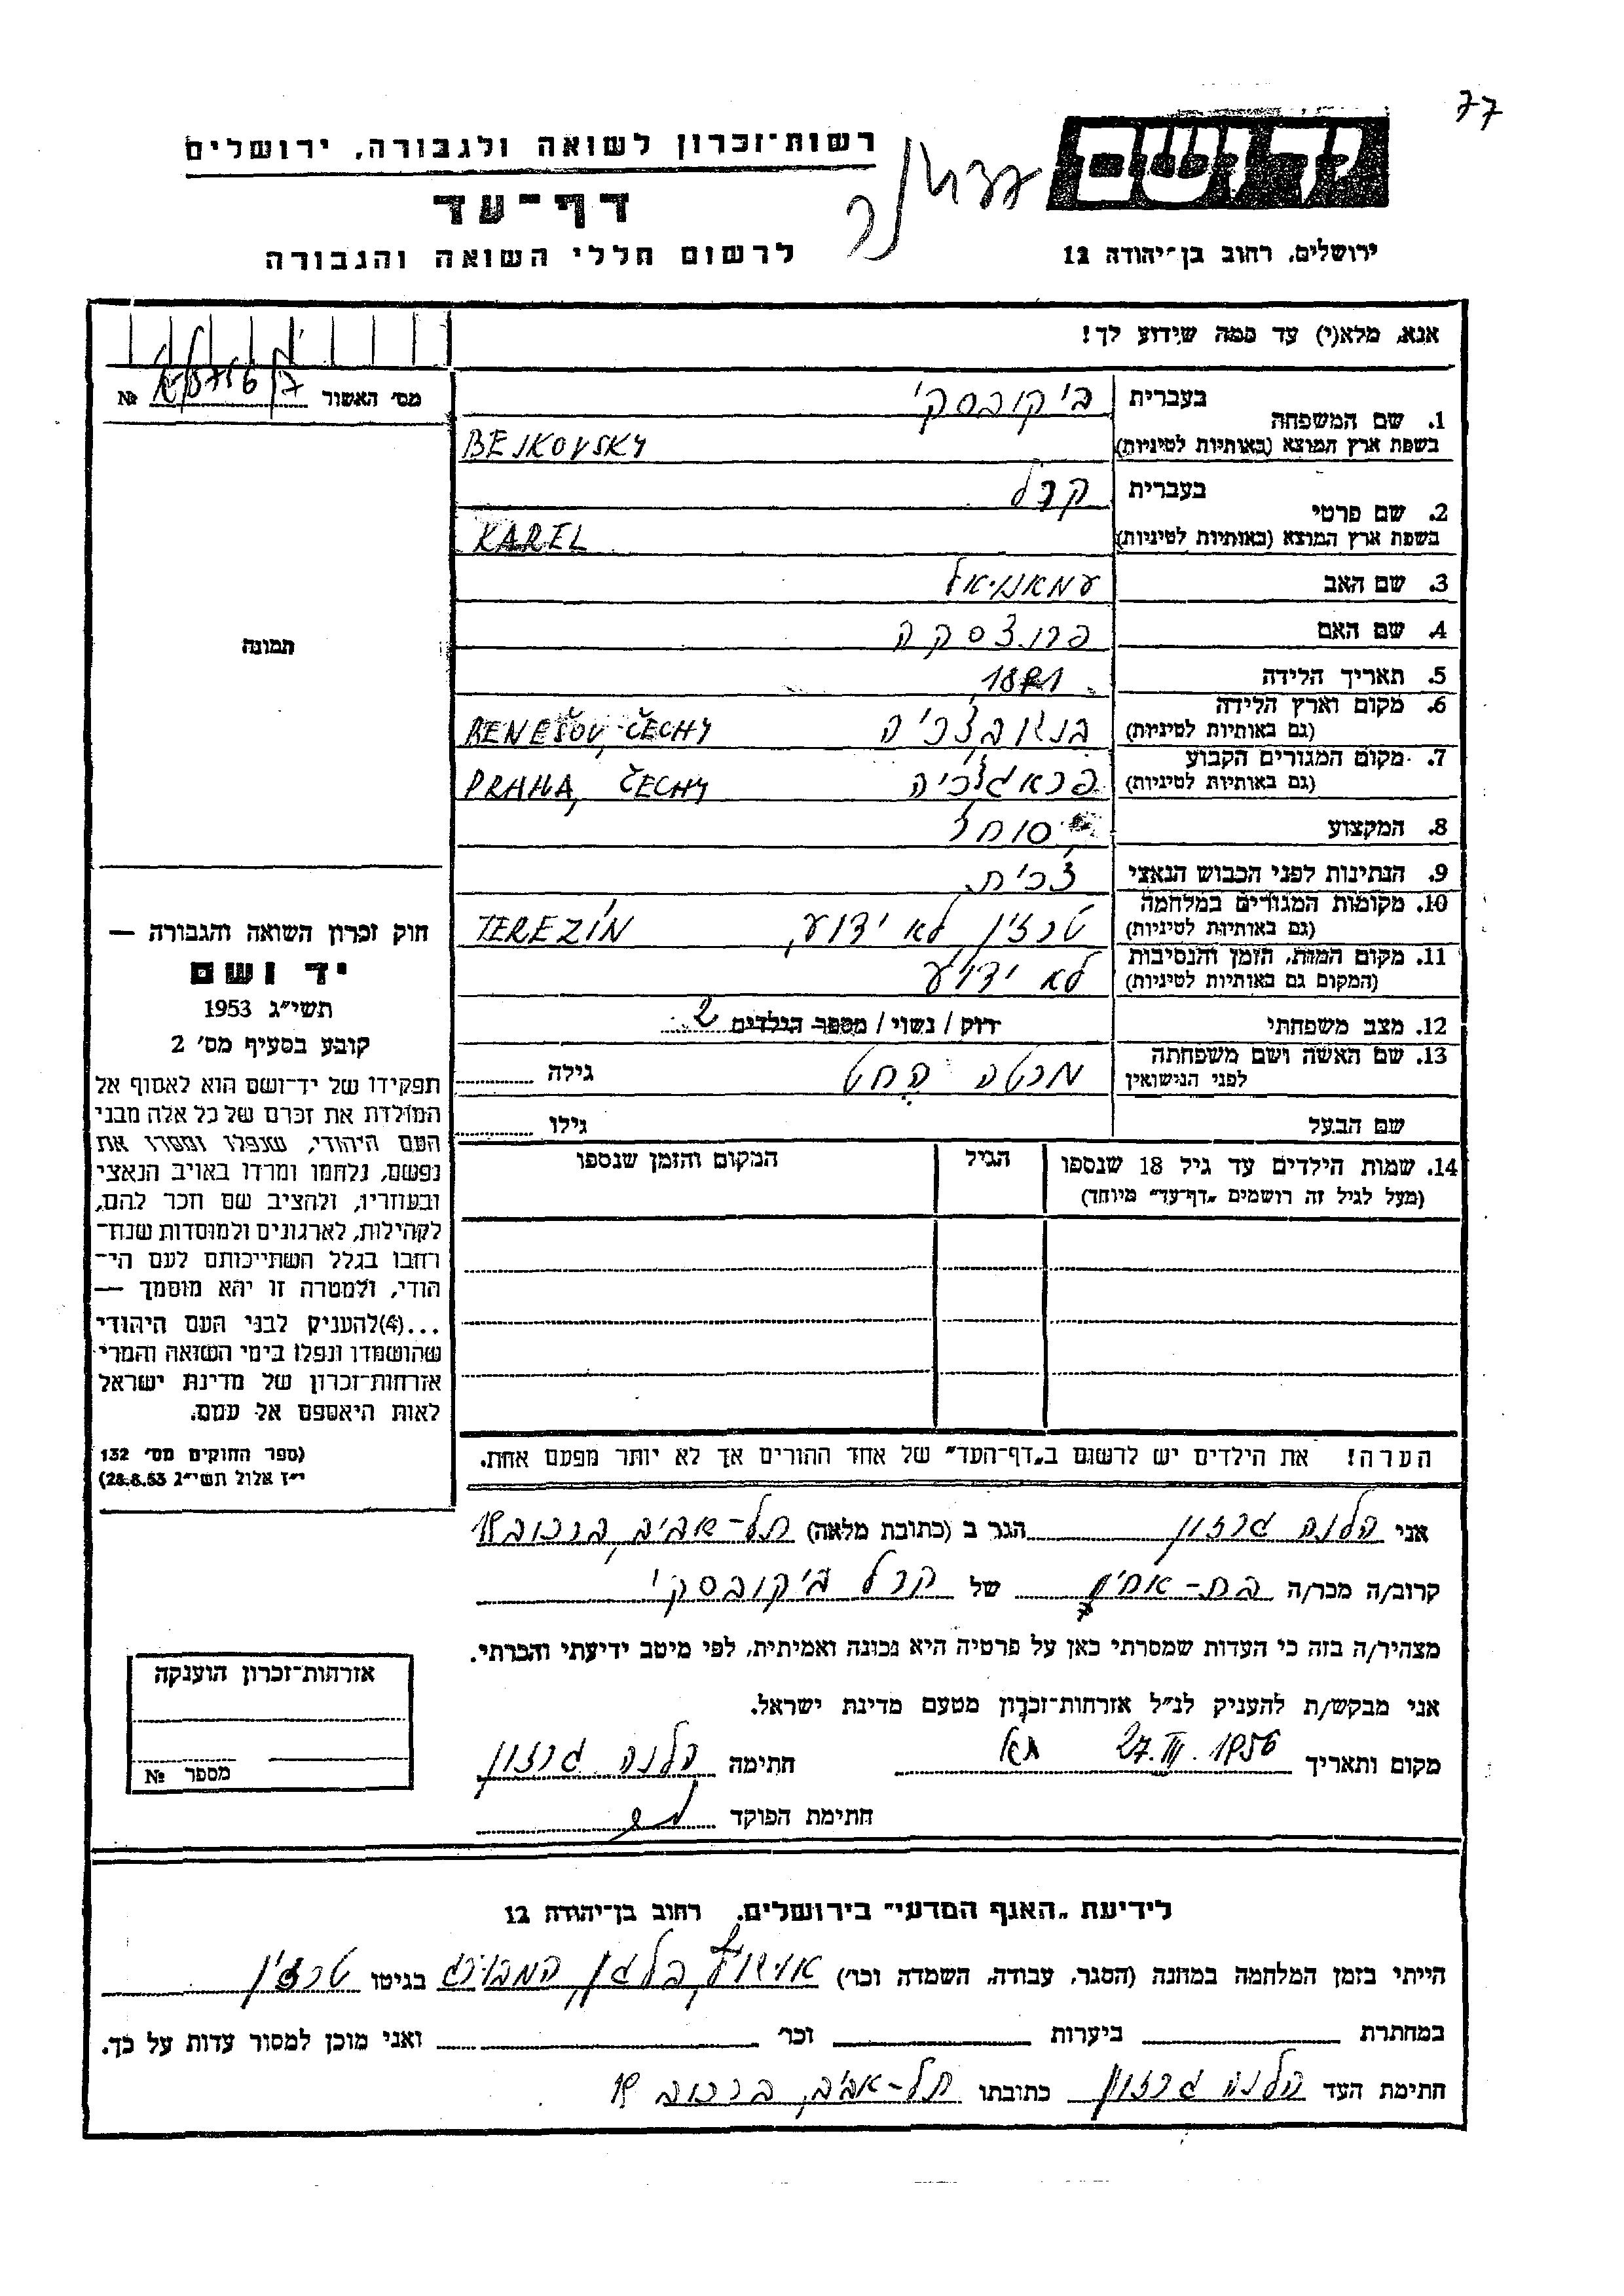 77
רשות־זכרון לשואה ולגבורה, ירושלים
דף־עד
לרשום חללי השואה והגבורה
יד ושם
ירושלים, רחוב בן־יהודה 12
אנא, מלא(י) עד כמה שידוע לך!
מס' האשור №
1. שם המשפחה בעברית ביקובסקי
בשפת ארץ המוצא (באותיות לטיניות) BEJKOVSKY
2. שם פרטי בעברית קרל
בשפת ארץ המוצא (באותיות לטיניות) KAREL
3. שם האב עמאנויאל
4. שם האם פרנצסקה
5. תאריך הלידה
6. מקום וארץ הלידה
(גם באותיות לטיניות) BENEŠOV, ČECHY
7. מקום המגורים הקבוע
(גם באותיות לטיניות) PRAHA, ČECHY
8. המקצוע סוחר
9. הנתינות לפני הכבוש הנאצי צ'כית
10. מקומות המגורים במלחמה
(גם באותיות לטיניות) טרזין לא ידוע, TEREZÍN
11. מקום המות, הזמן והנסיבות
(המקום גם באותיות לטיניות) לא ידוע
12. מצב משפחתי רוק / נשוי / מספר הילדים 2
13. שם האשה ושם משפחתה
לפני הנישואין גילה
שם הבעל גילו
14. שמות הילדים עד גיל 18 שנספו הגיל המקום והזמן שנספו
(מעל לגיל זה רושמים „דף־עד" מיוחד)
תמונה
חוק זכרון השואה והגבורה —
יד ושם
תשי״ג 1953
קובע בסעיף מס' 2
תפקידו של יד־ושם הוא לאסוף אל
המולדת את זכרם של כל אלה מבני
העם היהודי, שנפלו ומסרו את
נפשם, נלחמו ומרדו באויב הנאצי
ובעוזריו, ולהציב שם וזכר להם,
לקהילות, לארגונים ולמוסדות שנח־
רבו בגלל השתייכותם לעם הי־
הודי, ולמטרה זו יהא מוסמך —
...(4)להעניק לבני העם היהודי
שהושמדו ונפלו בימי השואה והמרי
אזרחות־זכרון של מדינת ישראל
לאות היאספם אל עמם.
(ספר החוקים מס' 132
י״ז אלול תשי״ג 28.8.53)
הערה! את הילדים יש לרשום ב„דף־העד" של אחד ההורים אך לא יותר מפעם אחת.
אני הלנה גרזון הגר ב (כתובת מלאה) תל-אביב,
קרוב/ה מכר/ה בת-אחין של קרל ביקובסקי
מצהיר/ה בזה כי העדות שמסרתי כאן על פרטיה היא נכונה ואמיתית, לפי מיטב ידיעתי והכרתי.
אני מבקש/ת להעניק לנ״ל אזרחות־זכרון מטעם מדינת ישראל.
מקום ותאריך 27.III.1956 חתימה הלנה גרזון
חתימת הפוקד
אזרחות־זכרון הוענקה
מספר №
לידיעת „האגף המדעי" בירושלים, רחוב בן־יהודה 12
הייתי בזמן המלחמה במחנה (הסגר, עבודה, השמדה וכו') המבורג בגיטו טרזין
במחתרת ביערות וכו' ואני מוכן למסור עדות על כך.
חתימת העד הלנה גרזון כתובתו תל-אביב,